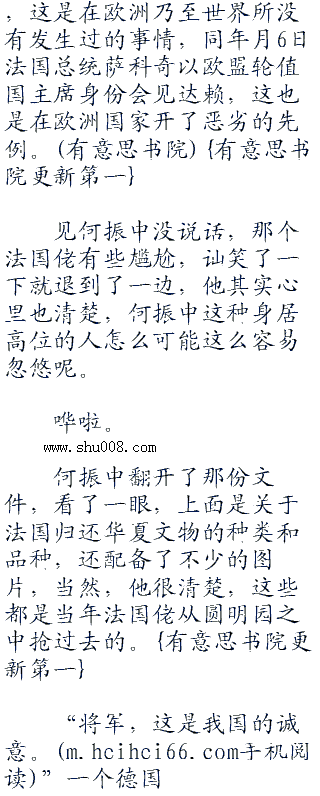 ，这是在欧洲乃至世界所没
有发生过的事情，同年月6日
法国总统萨科奇以欧盟轮值
国主席身份会见达赖，这也
是在欧洲国家开了恶劣的先
例。(有意思书院){有意思书
院更新第一}
见何振中没说话，那个
法国佬有些尴尬，讪笑了一
下就退到了一边，他其实心
里也清楚，何振中这种身居
高位的人怎么可能这么容易
忽悠呢。
哗啦。
www.shu008.com
何振中翻开了那份文
件，看了一眼，上面是关于
法国归还华夏文物的种类和
品种，还配备了不少的图
片，当然，他很清楚，这些
都是当年法国佬从圆明园之
中抢过去的。{有意思书院更
新第一}
“将军，这是我国的诚
意。(m.hcihci66.com手机阅
读)”一个德国